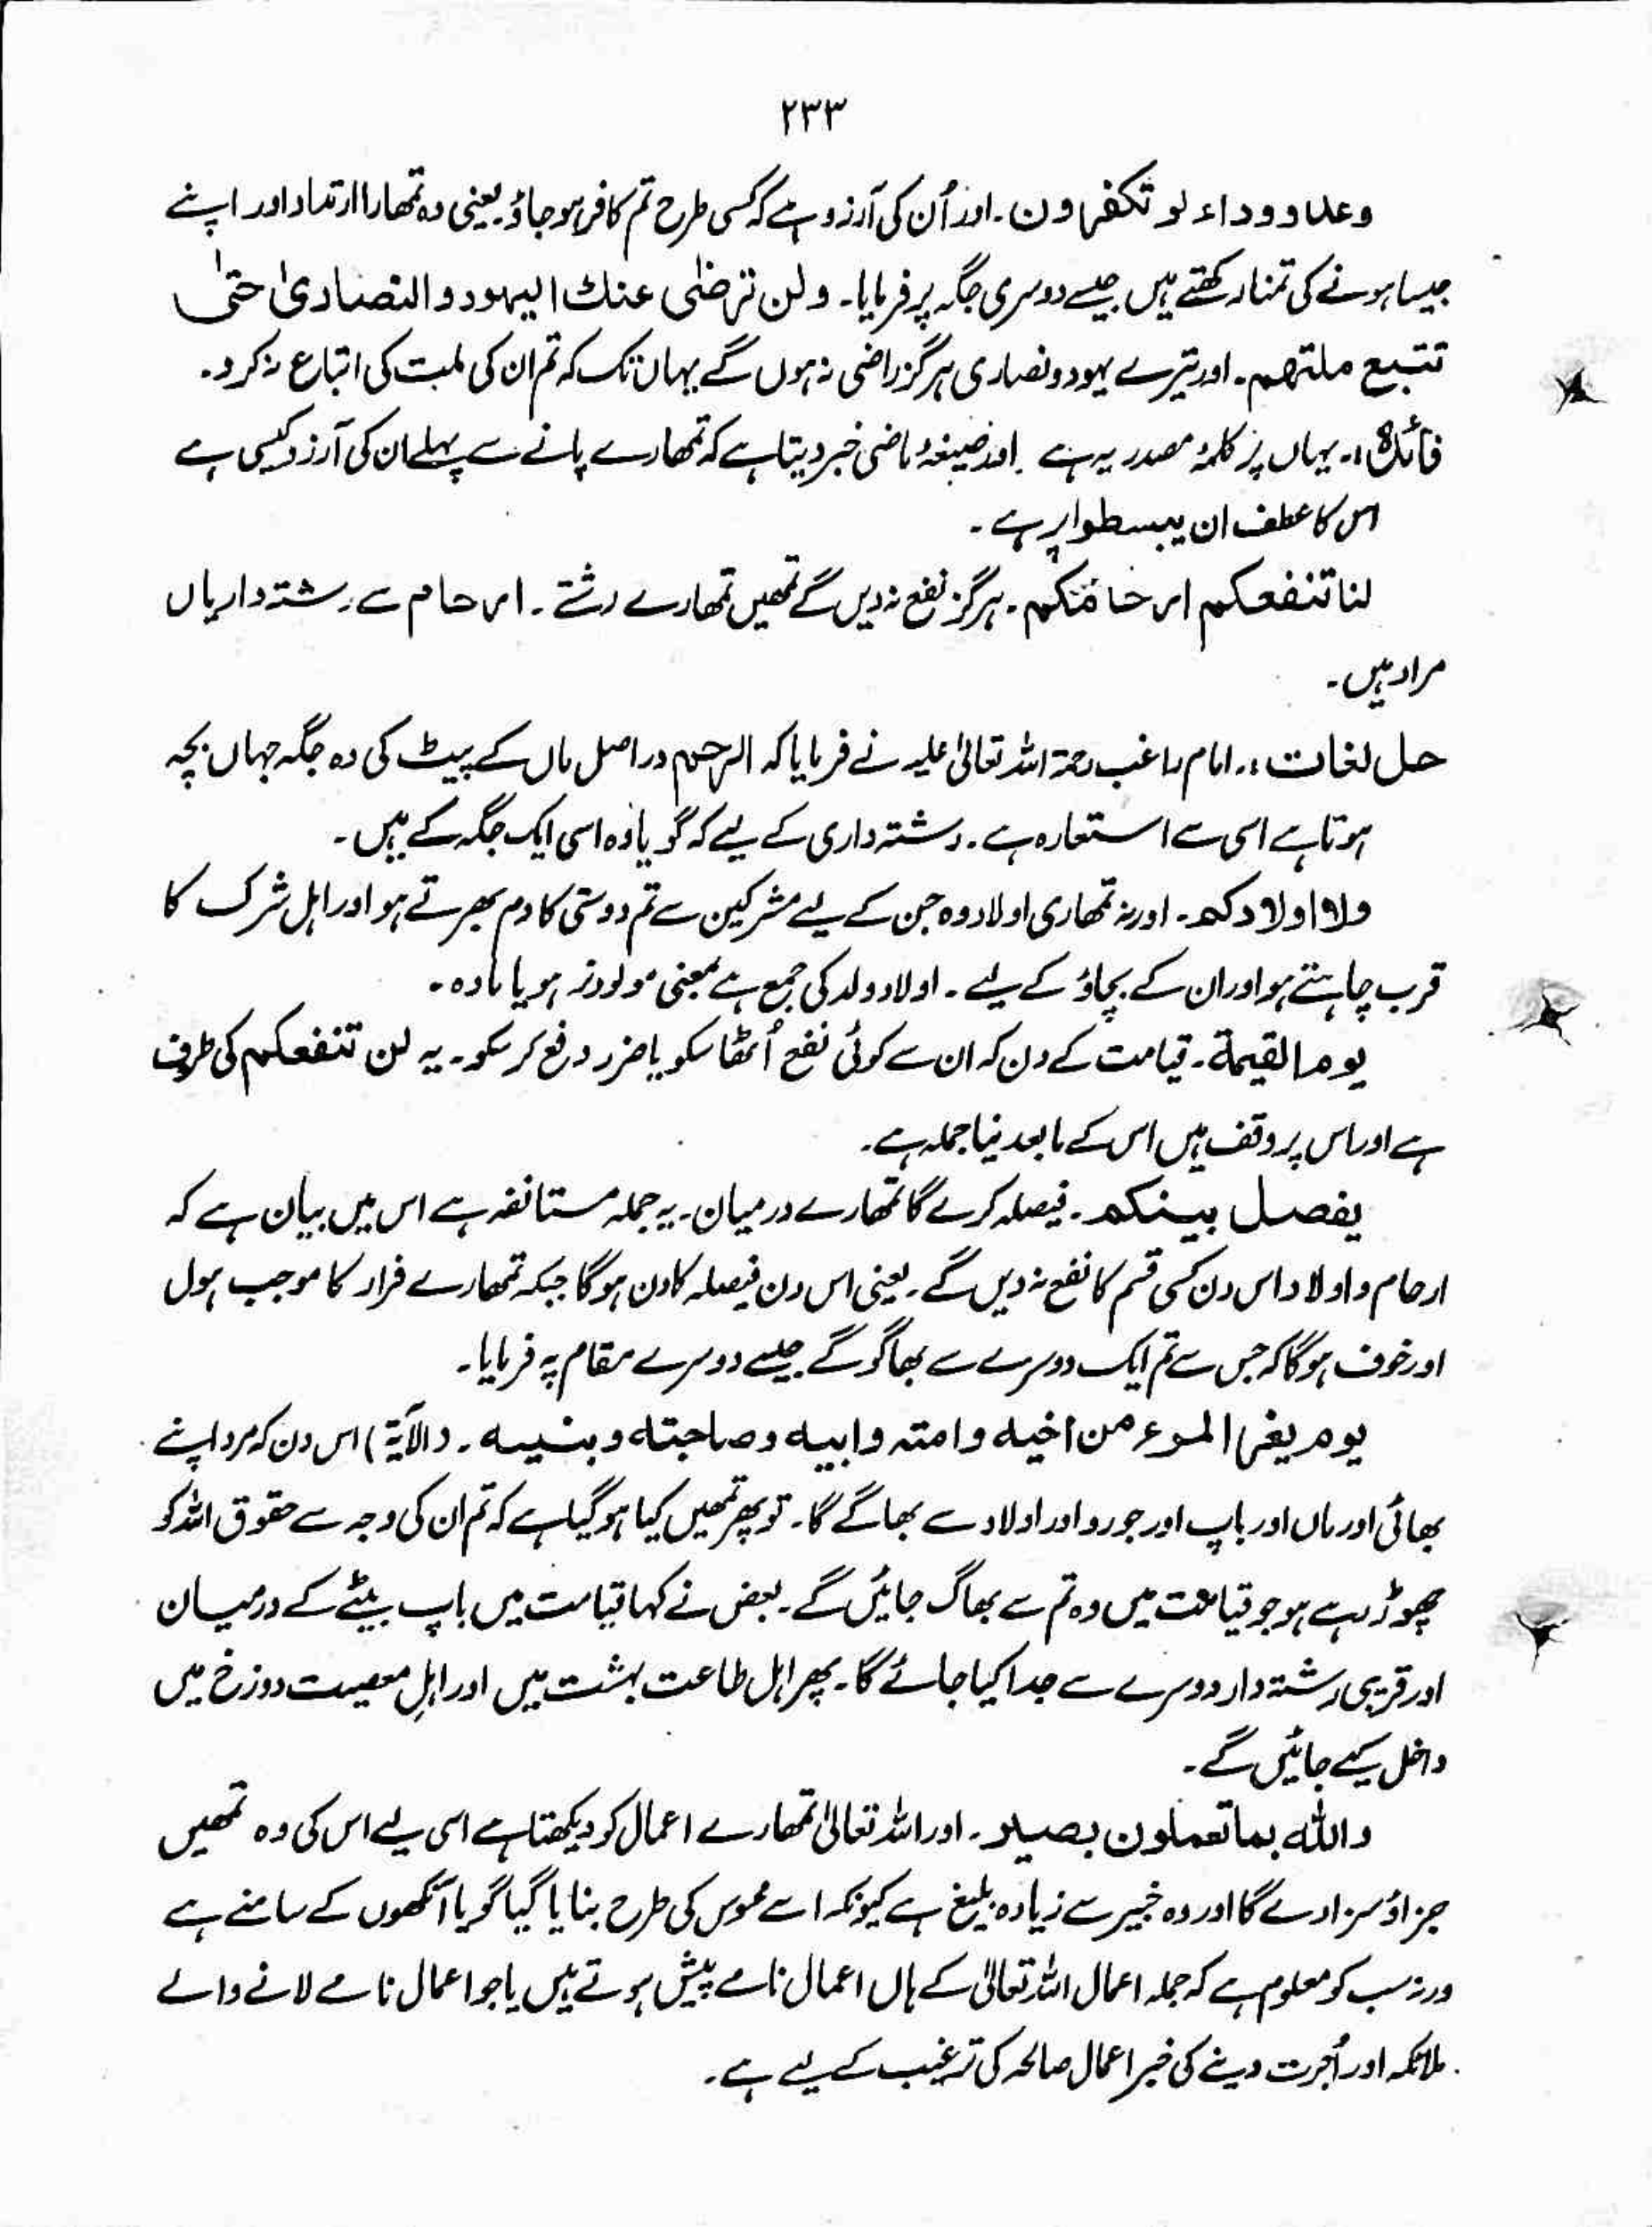 ۲۳۳
وعدا وودا ء لو تکفرون۔ اور اُن کی آرزو ہے کہ کسی طرح تم کافر ہو جاؤ۔ یعنی وہ تمھارا ارتداد اور اپنے
جیسا ہونے کی تمنا رکھتے ہیں جیسے دوسری جگہ پر فرمایا۔ ولن ترضٰی عنك الیہود و النصاریٰ حتیٰ
تتبع ملتھم۔ اور تیرے یہود و نصاری ہرگز راضی نہ ہوں گے یہاں تک کہ تم ان کی ملت کی اتباع نہ کرو۔
فائدہ:۔ یہاں پر کلمۂ مصدریہ ہے اور صیغۂ ماضی خبر دیتا ہے کہ تمھارے پانے سے پہلے ان کی آرزو کیسی ہے
اس کا عطف ان یبسطوا پر ہے۔
لنا تنفعکم ارحامکم۔ ہرگز نفع نہ دیں گے تمھیں تمھارے رشتے۔ ارحام سے رشتہ داریاں
مراد ہیں۔
حل لغات:۔ امام راغب رحمۃ اللہ تعالیٰ علیہ نے فرمایا کہ الرحم در اصل ماں کے پیٹ کی وہ جگہ جہاں بچہ
ہوتا ہے اسی سے استعارہ ہے۔ رشتہ داری کے لیے کہ گویا وہ اسی ایک جگہ کے ہیں۔
ولا اولادکم۔ اور نہ تمھاری اولاد وہ جن کے لیے مشرکین سے تم دوستی کا دم بھرتے ہو اور اہل شرک کا
قرب چاہتے ہو اور ان کے بچاؤ کے لیے۔ اولاد ولد کی جمع ہے بمعنی مولود نر ہو یا مادہ۔
یوم القیمۃ۔ قیامت کے دن کہ ان سے کوئی نفع اُٹھا سکو یا ضرر دفع کر سکو۔ یہ لن تنفعکم کی ظرف
ہے اور اس پر وقف ہیں اس کے مابعد نیا جملہ ہے۔
یفصل بینکم۔ فیصلہ کرے گا تمھارے درمیان۔ یہ جملہ مستانفہ ہے اس میں بیان ہے کہ
ارحام و اولاد اس دن کسی قسم کا نفع نہ دیں گے۔ یعنی اس دن فیصلہ کا دن ہو گا جبکہ تمھارے فرار کا موجب ہول
اور خوف ہو گا کہ جس سے تم ایک دوسرے سے بھاگو گے جیسے دوسرے مقام پہ فرمایا۔
یوم یفر المرء من اخیه وامته وابیه وصاحبته وبنیه۔ (الآیۃ) اس دن کہ مرد اپنے
بھائی اور ماں اور باپ اور جورو اور اولاد سے بھاگے گا۔ تو پھر تمھیں کیا ہو گیا ہے کہ تم ان کی وجہ سے حقوق اللہ کو
چھوڑ رہے ہو جو قیامت میں وہ تم سے بھاگ جائیں گے۔ بعض نے کہا قیامت میں باپ بیٹے کے درمیان
اور قریبی رشتہ دار دوسرے سے جدا کیا جائے گا۔ پھر اہل طاعت بہشت میں اور اہلِ معصیت دوزخ میں
داخل کیے جائیں گے۔
والله بما تعملون بصیر۔ اور اللہ تعالیٰ تمھارے اعمال کو دیکھتا ہے اسی لیے اس کی وہ تمھیں
جزاؤ سزا دے گا اور وہ خبیر سے زیادہ بلیغ ہے کیونکہ اسے محسوس کی طرح بنایا گیا گویا آنکھوں کے سامنے ہے
ورنہ سب کو معلوم ہے کہ جملہ اعمال اللہ تعالیٰ کے ہاں اعمال نامے پیش ہوتے ہیں یا جو اعمال نامے لانے والے
ملائکہ اور اُجرت دینے کی خبر اعمال صالحہ کی ترغیب کے لیے ہے۔